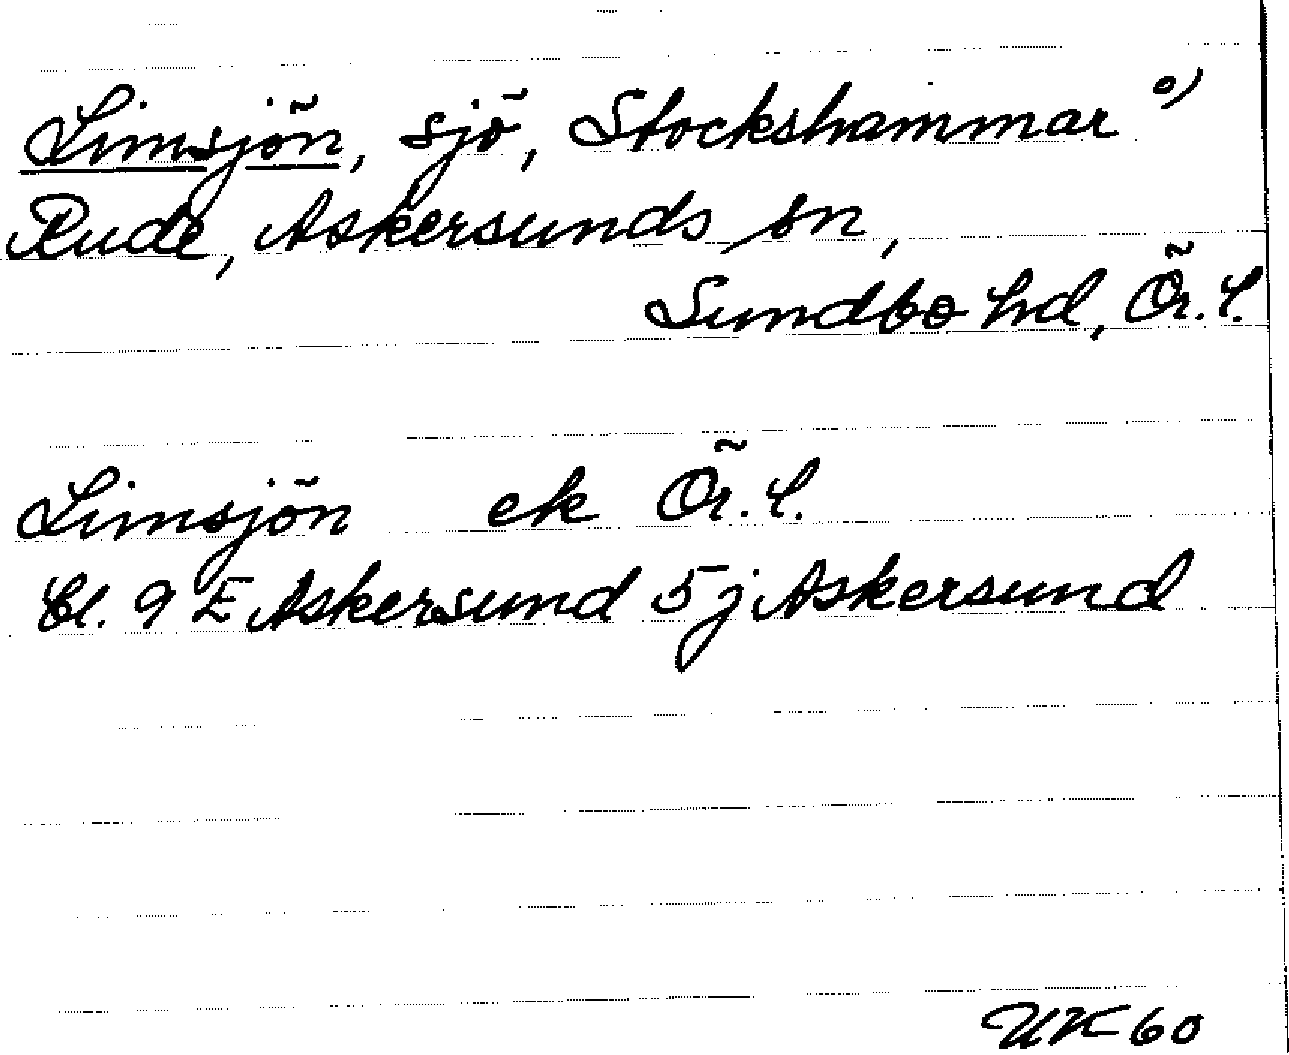 Limsjön, sjö, Stockshammar o)
Rude, Askersunds sn,
Sundbo hd, Ör. l.
Limsjön ek Ör. l.
Bl. 9 E Askersund 5j Askersund
UK 60